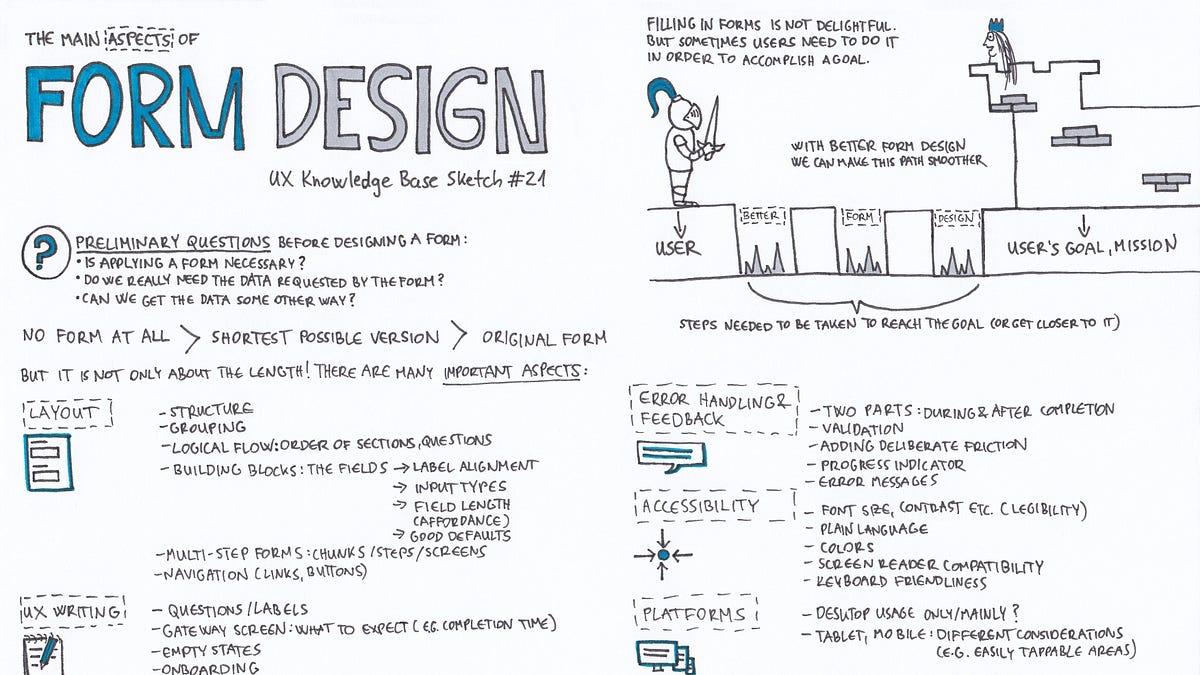 THE MAIN ASPECTS OF
FORM DESIGN
UX Knowledge Base Sketch #21
?
PRELIMINARY QUESTIONS BEFORE DESIGNING A FORM:
• IS APPLYING A FORM NECESSARY?
• DO WE REALLY NEED THE DATA REQUESTED BY THE FORM?
• CAN WE GET THE DATA SOME OTHER WAY?
NO FORM AT ALL > SHORTEST POSSIBLE VERSION > ORIGINAL FORM
BUT IT IS NOT ONLY ABOUT THE LENGTH! THERE ARE MANY IMPORTANT ASPECTS:
LAYOUT
- STRUCTURE
- GROUPING
- LOGICAL FLOW: ORDER OF SECTIONS, QUESTIONS
- BUILDING BLOCKS: THE FIELDS → LABEL ALIGNMENT
→ INPUT TYPES
→ FIELD LENGTH
(AFFORDANCE)
→ GOOD DEFAULTS
- MULTI-STEP FORMS: CHUNKS/STEPS/SCREENS
- NAVIGATION (LINKS, BUTTONS)
UX WRITING
- QUESTIONS/LABELS
- GATEWAY SCREEN: WHAT TO EXPECT (E.G. COMPLETION TIME)
- EMPTY STATES
- ONBOARDING
FILLING IN FORMS IS NOT DELIGHTFUL.
BUT SOMETIMES USERS NEED TO DO IT
IN ORDER TO ACCOMPLISH A GOAL.
WITH BETTER FORM DESIGN
WE CAN MAKE THIS PATH SMOOTHER
BETTER FORM DESIGN
USER
USER'S GOAL, MISSION
STEPS NEEDED TO BE TAKEN TO REACH THE GOAL (OR GET CLOSER TO IT)
ERROR HANDLING &
FEEDBACK
- TWO PARTS: DURING & AFTER COMPLETION
- VALIDATION
- ADDING DELIBERATE FRICTION
- PROGRESS INDICATOR
- ERROR MESSAGES
ACCESSIBILITY
- FONT SIZE, CONTRAST ETC. (LEGIBILITY)
- PLAIN LANGUAGE
- COLORS
- SCREEN READER COMPATIBILITY
- KEYBOARD FRIENDLINESS
PLATFORMS
- DESKTOP USAGE ONLY/MAINLY?
- TABLET, MOBILE: DIFFERENT CONSIDERATIONS
(E.G. EASILY TAPPABLE AREAS)